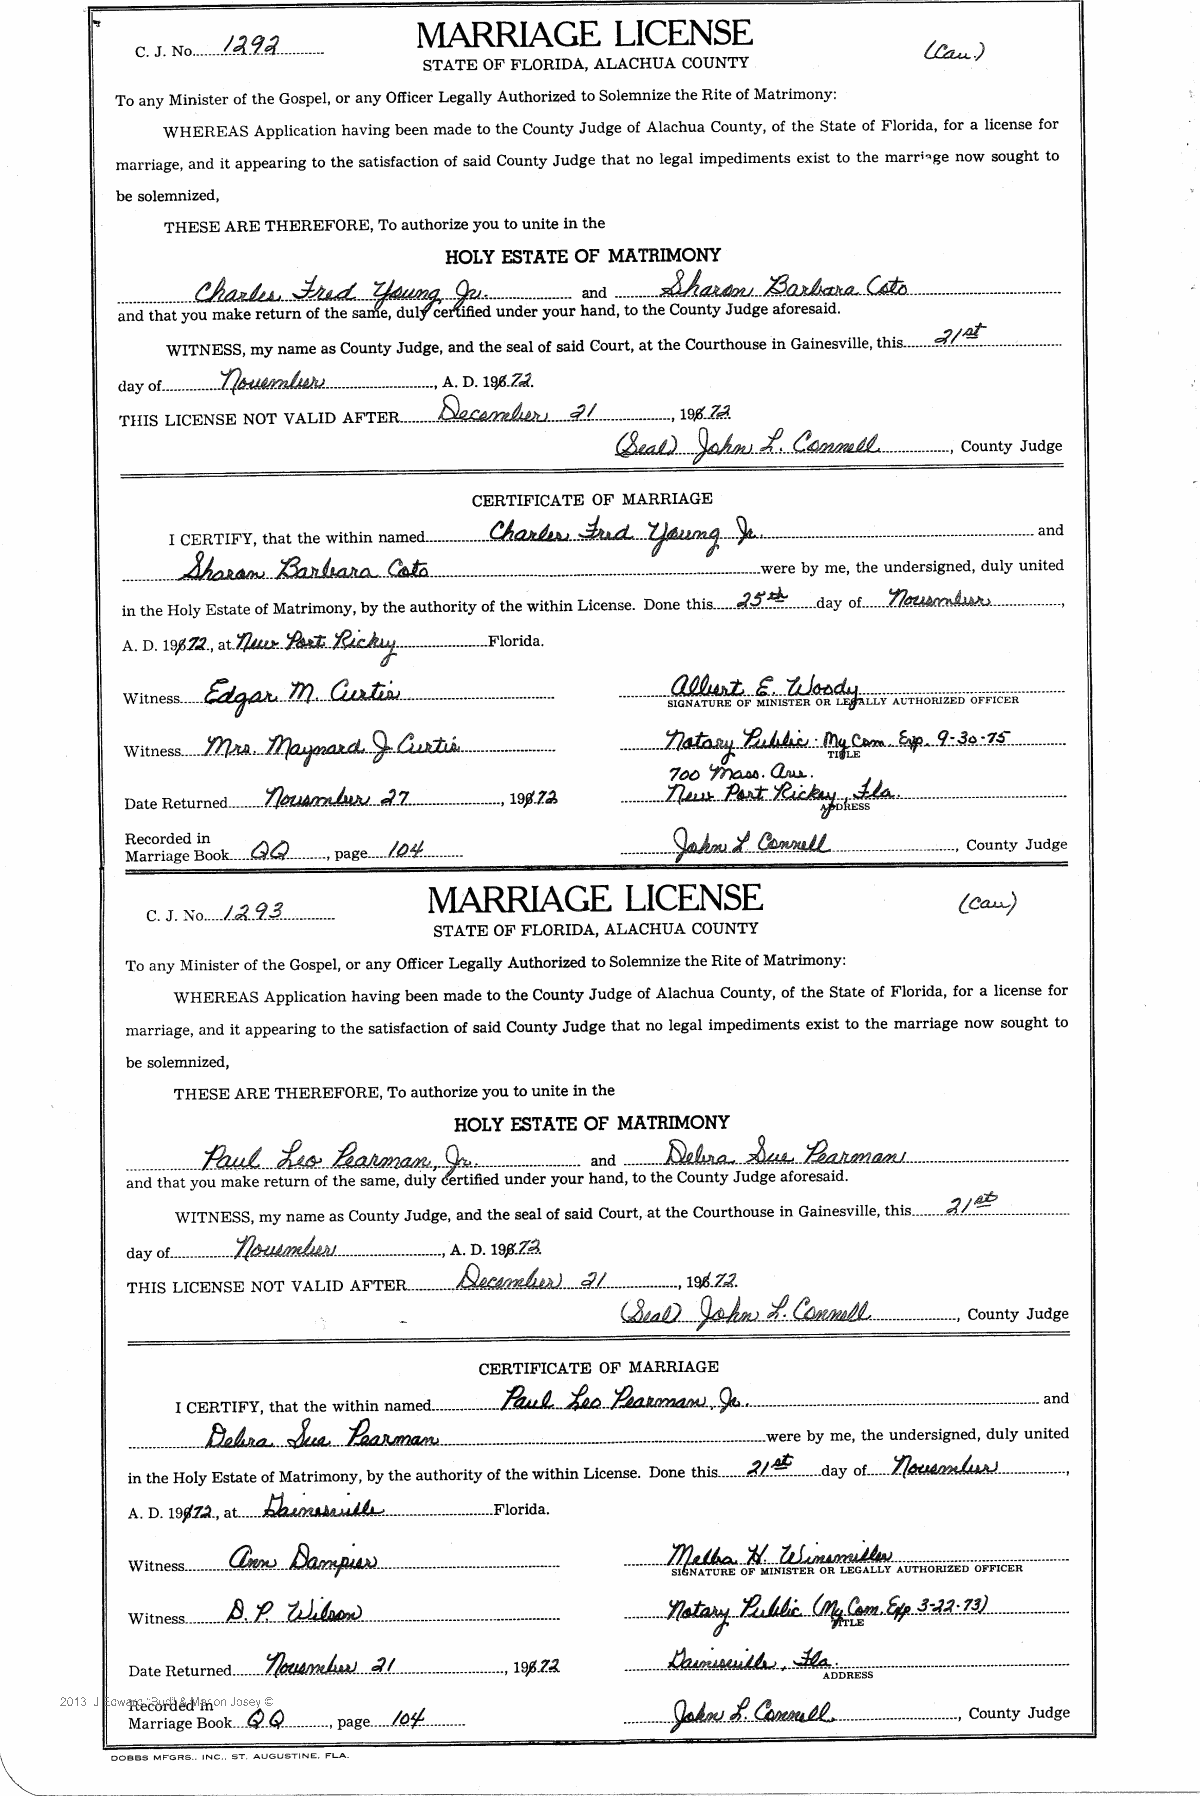 C. J. No. 1292
MARRIAGE LICENSE
(Cau.)
STATE OF FLORIDA, ALACHUA COUNTY
To any Minister of the Gospel, or any Officer Legally Authorized to Solemnize the Rite of Matrimony:
WHEREAS Application having been made to the County Judge of Alachua County, of the State of Florida, for a license for
marriage, and it appearing to the satisfaction of said County Judge that no legal impediments exist to the marriage now sought to
be solemnized,
THESE ARE THEREFORE, To authorize you to unite in the
HOLY ESTATE OF MATRIMONY
Charles Fred Young Jr. and Sharon Barbara Coto
and that you make return of the same, duly certified under your hand, to the County Judge aforesaid.
WITNESS, my name as County Judge, and the seal of said Court, at the Courthouse in Gainesville, this 21st
day of November, A. D. 1972.
THIS LICENSE NOT VALID AFTER December 21, 1972
(Seal) John L. Connell, County Judge
CERTIFICATE OF MARRIAGE
I CERTIFY, that the within named Charles Fred Young Jr. and
Sharon Barbara Coto were by me, the undersigned, duly united
in the Holy Estate of Matrimony, by the authority of the within License. Done this 25th day of November,
A. D. 1972, at New Port Rickey Florida.
Witness Edgar M. Curtis
Albert E. Woody
SIGNATURE OF MINISTER OR LEGALLY AUTHORIZED OFFICER
Witness Mrs. Maynard J. Curtis
Notary Public. My Com. Exp. 9-30-75
TITLE
700 Mass. Ave.
Date Returned November 27, 1972
New Port Rickey, Fla.
ADDRESS
Recorded in
Marriage Book QQ, page 104
John L Connell, County Judge
C. J. No. 1293
MARRIAGE LICENSE
(Cau)
STATE OF FLORIDA, ALACHUA COUNTY
To any Minister of the Gospel, or any Officer Legally Authorized to Solemnize the Rite of Matrimony:
WHEREAS Application having been made to the County Judge of Alachua County, of the State of Florida, for a license for
marriage, and it appearing to the satisfaction of said County Judge that no legal impediments exist to the marriage now sought to
be solemnized,
THESE ARE THEREFORE, To authorize you to unite in the
HOLY ESTATE OF MATRIMONY
Paul Leo Pearman, Jr. and Debra Sue Pearman
and that you make return of the same, duly certified under your hand, to the County Judge aforesaid.
WITNESS, my name as County Judge, and the seal of said Court, at the Courthouse in Gainesville, this 21st
day of November, A. D. 1972
THIS LICENSE NOT VALID AFTER December 21, 1972.
(Seal) John L. Connell, County Judge
CERTIFICATE OF MARRIAGE
I CERTIFY, that the within named Paul Leo Pearman, Jr. and
Debra Sue Pearman were by me, the undersigned, duly united
in the Holy Estate of Matrimony, by the authority of the within License. Done this 21st day of November,
A. D. 1972, at Gainesville Florida.
Witness Ann Dampier
Melba H. Winsmiller
SIGNATURE OF MINISTER OR LEGALLY AUTHORIZED OFFICER
Witness D. P. Wilson
Notary Public (My Com. Exp 3-22-73)
TITLE
Date Returned November 21, 1972
Gainesville, Fla.
ADDRESS
2013 J Edward "Bud" & Mason Josey ©
Recorded in
Marriage Book QQ, page 104
John L. Connell, County Judge
DOBBS MFGRS., INC., ST. AUGUSTINE, FLA.